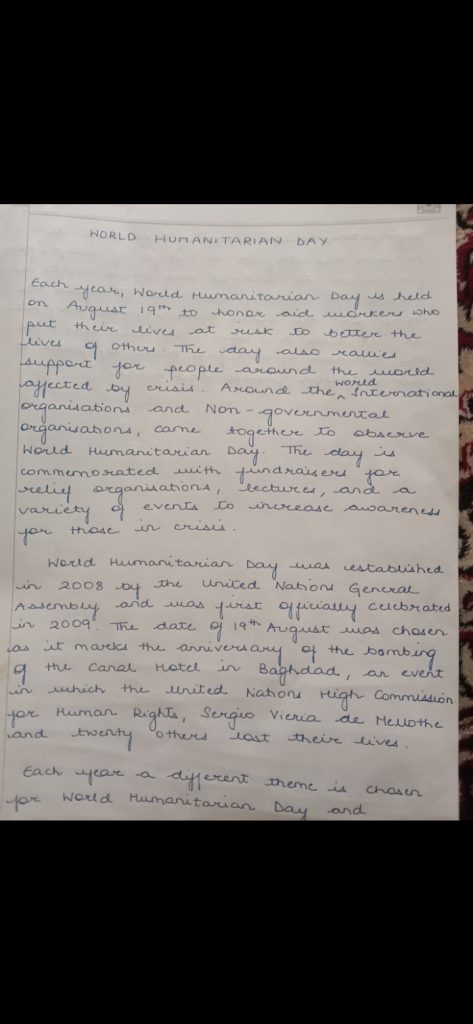 WORLD HUMANITARIAN DAY.
Each year, World Humanitarian Day is held
on August 19th to honor aid workers who
put their lives at risk to better the
lives of others. The day also rallies
support for people around the world
affected by crisis. Around the world International
organisations and Non-governmental
organisations, came together to observe
World Humanitarian Day. The day is
commemorated with fundraisers for
relief organisations, lectures, and a
variety of events to increase awareness
for those in crisis.
World Humanitarian Day was established
in 2008 by the United Nations General
Assembly and was first officially celebrated
in 2009. The date of 19th August was chosen
as it marks the anniversary of the bombing
of the Canal Hotel in Baghdad, an event
in which the United Nations High Commission
for Human Rights, Sergio Vieria de Mellothe
and twenty others lost their lives.
Each year a different theme is chosen
for World Humanitarian Day and